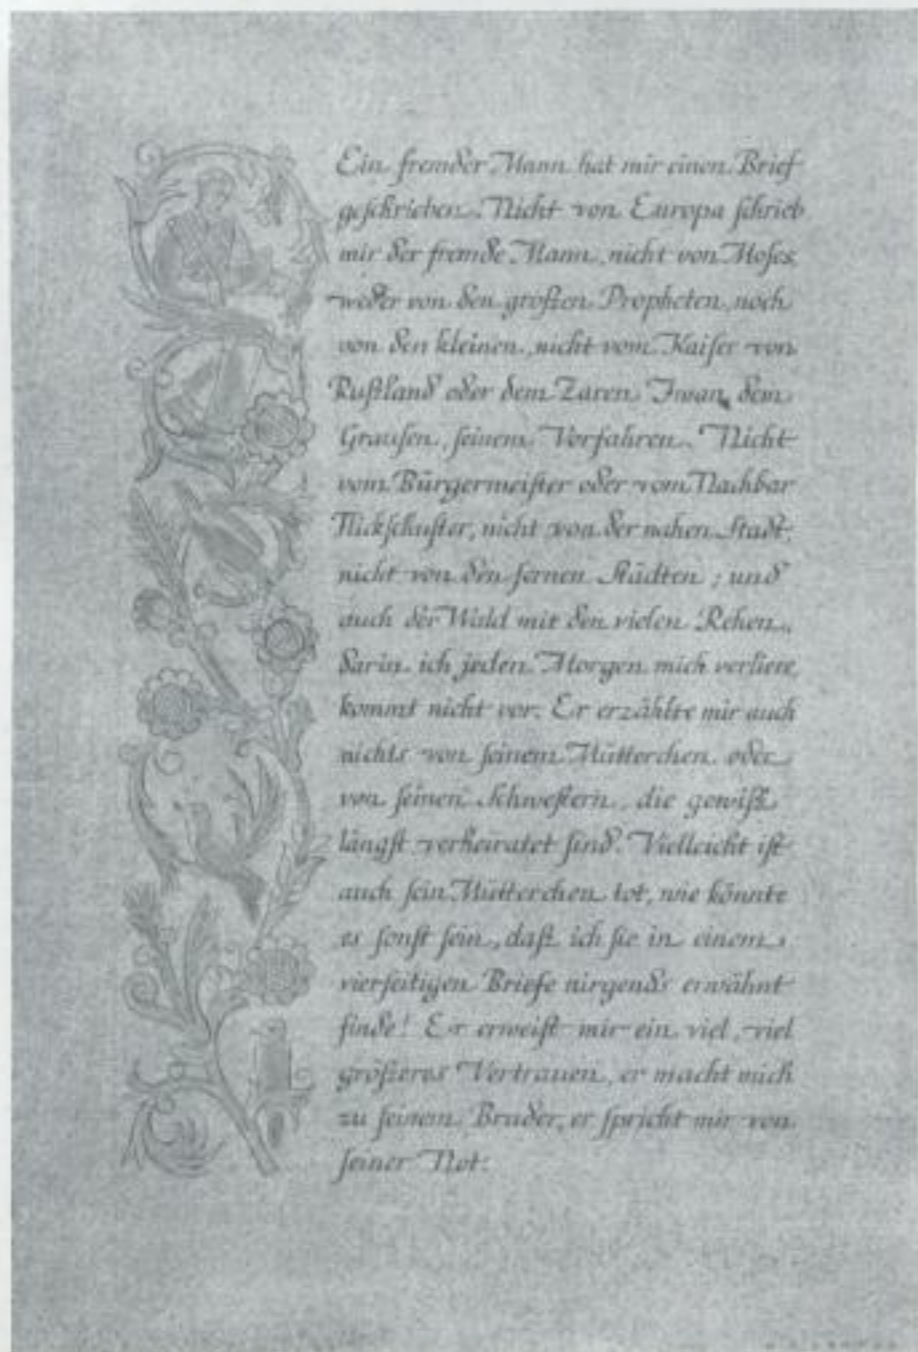 Ein fremder Mann hat mir einen Brief
geschrieben. Nicht von Europa schrieb
mir der fremde Mann, nicht von Moses,
weder von den großen Propheten, noch
von den kleinen, nicht vom Kaiser von
Rußland oder dem Zaren Iwan, dem
Grausen, seinem Vorfahren. Nicht
vom Bürgermeister oder vom Nachbar
Flickschuster, nicht von der nahen Stadt,
nicht von den fernen Städten; und
auch der Wald mit den vielen Rehen,
darin ich jeden Morgen mich verliere,
kommt nicht vor. Er erzählte mir auch
nichts von seinem Mütterchen oder
von seinen Schwestern, die gewiß
längst verheiratet sind. Vielleicht ist
auch sein Mütterchen tot, wie könnte
es sonst sein, daß ich sie in einem
vierseitigen Briefe nirgends erwähnt
finde! Er erweist mir ein viel, viel
größeres Vertrauen, er macht mich
zu seinem Bruder, er spricht mir von
seiner Not.